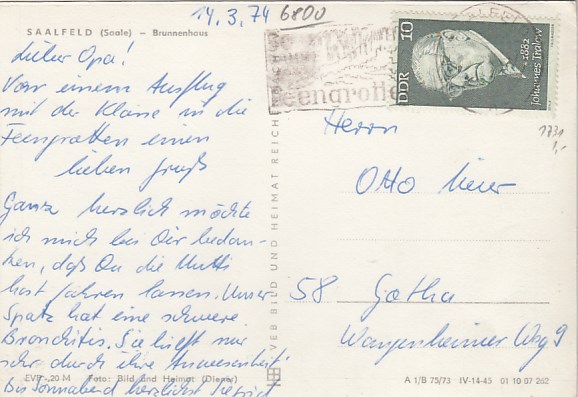 14.3.74 6800
SAALFELD (Saale) – Brunnenhaus
Lieber Opa!
Von einem Ausflug
mit der Klasse in die
Feengrotten einen
lieben Gruß
Ganz herzlich möchte
ich mich bei Dir bedan-
ken, daß Du die Mutti
hast fahren lassen. Unser
Spatz hat eine schwere
Bronchitis. Sie hilft mir
sehr durch ihre Anwesenheit!
Bis Sonnabend herzlichst
EVP -,20 M Foto: Bild und Heimat (Diener)
VEB BILD UND HEIMAT REICHENBACH
Feengrotte
DDR 10
1882
Johannes Tralow
1731
1,-
Herrn
Otto Meier
58 Gotha
Wangenheimer Weg 9
A 1/B 75/73 IV-14-45 01 10 07 262